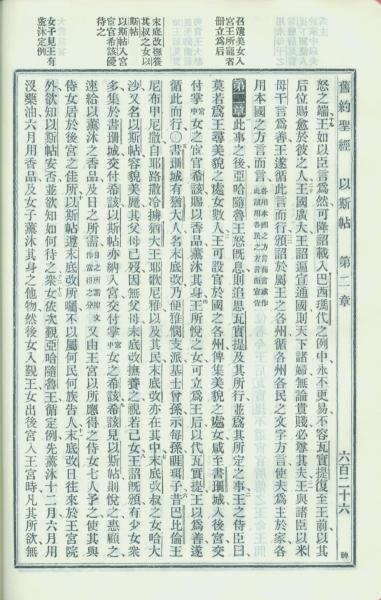 舊約聖經　以斯帖　第二章　六百二十六
召遴美女入
宮王所寵者
冊立爲后
末底改撫養
其叔之女以
斯帖
以斯帖入宮
宦官希該優
待之
女子見王有
薰沐定例
怒之端、王如以臣言爲然、可降詔載入巴西瑪代之例中、永不更易、不容瓦實提復至王前、以其
后位賜愈於彼之人、王國廣大、王詔遍宣通國、則天下諸婦、無論貴賤、必尊其夫、王與諸臣以米
母干言爲善、王遂循此言而行、頒詔於屬王之各州、循各州各民之文字方言、使夫爲主於家、各
用本國之方言而言
各用本國之方言而言或作
此詔用各民之方言而宣
第二章　此事之後、亞哈隨魯王怒旣息、則追思瓦實提、及其所行、並爲其所定之事、王之侍臣曰
莫若爲王尋美貌之處女數人、王可設官於國之各州、俾集美貌之處女、咸至書珊城、入後宮、交
付掌宮宦官希該、賜以香品薰沐其身、王所悅之女、可立爲王后、以代瓦實提、王以爲善、遂
循此而行、○書珊城有猶大人、名末底改、乃便雅憫支派、基士曾孫、示每孫、睚珥子、昔巴比倫王
尼布甲尼撒、由耶路撒冷擄猶大王耶歌尼雅、以及其民、末底改亦在其中、末底改叔之女哈大
沙、又名以斯帖、容貌美麗、其父母已歿、因無父母、末底改撫養之、視若己女、王詔旣頒、有少女衆
多集於書珊城、交付希該、以斯帖亦納入宮、交付掌女之希該、希該見以斯帖則悅之、惠顧之
速給以薰沐之香品、及日之所需、又由王宮以所應得之侍女七人予之、使其與
侍女居於後宮之佳所、以斯帖遵末底改所囑、不以屬何民何族告人、末底改日往來於王宮院
外、欲知以斯帖安否、並欲知如何待之、衆女依次覲亞哈隨魯王、循定例先薰沐十二月、六月用
沒藥油、六月用香品、及女子薰沐其身之他物、然後女入覲王、女出後宮入王宮時、凡其所欲、無